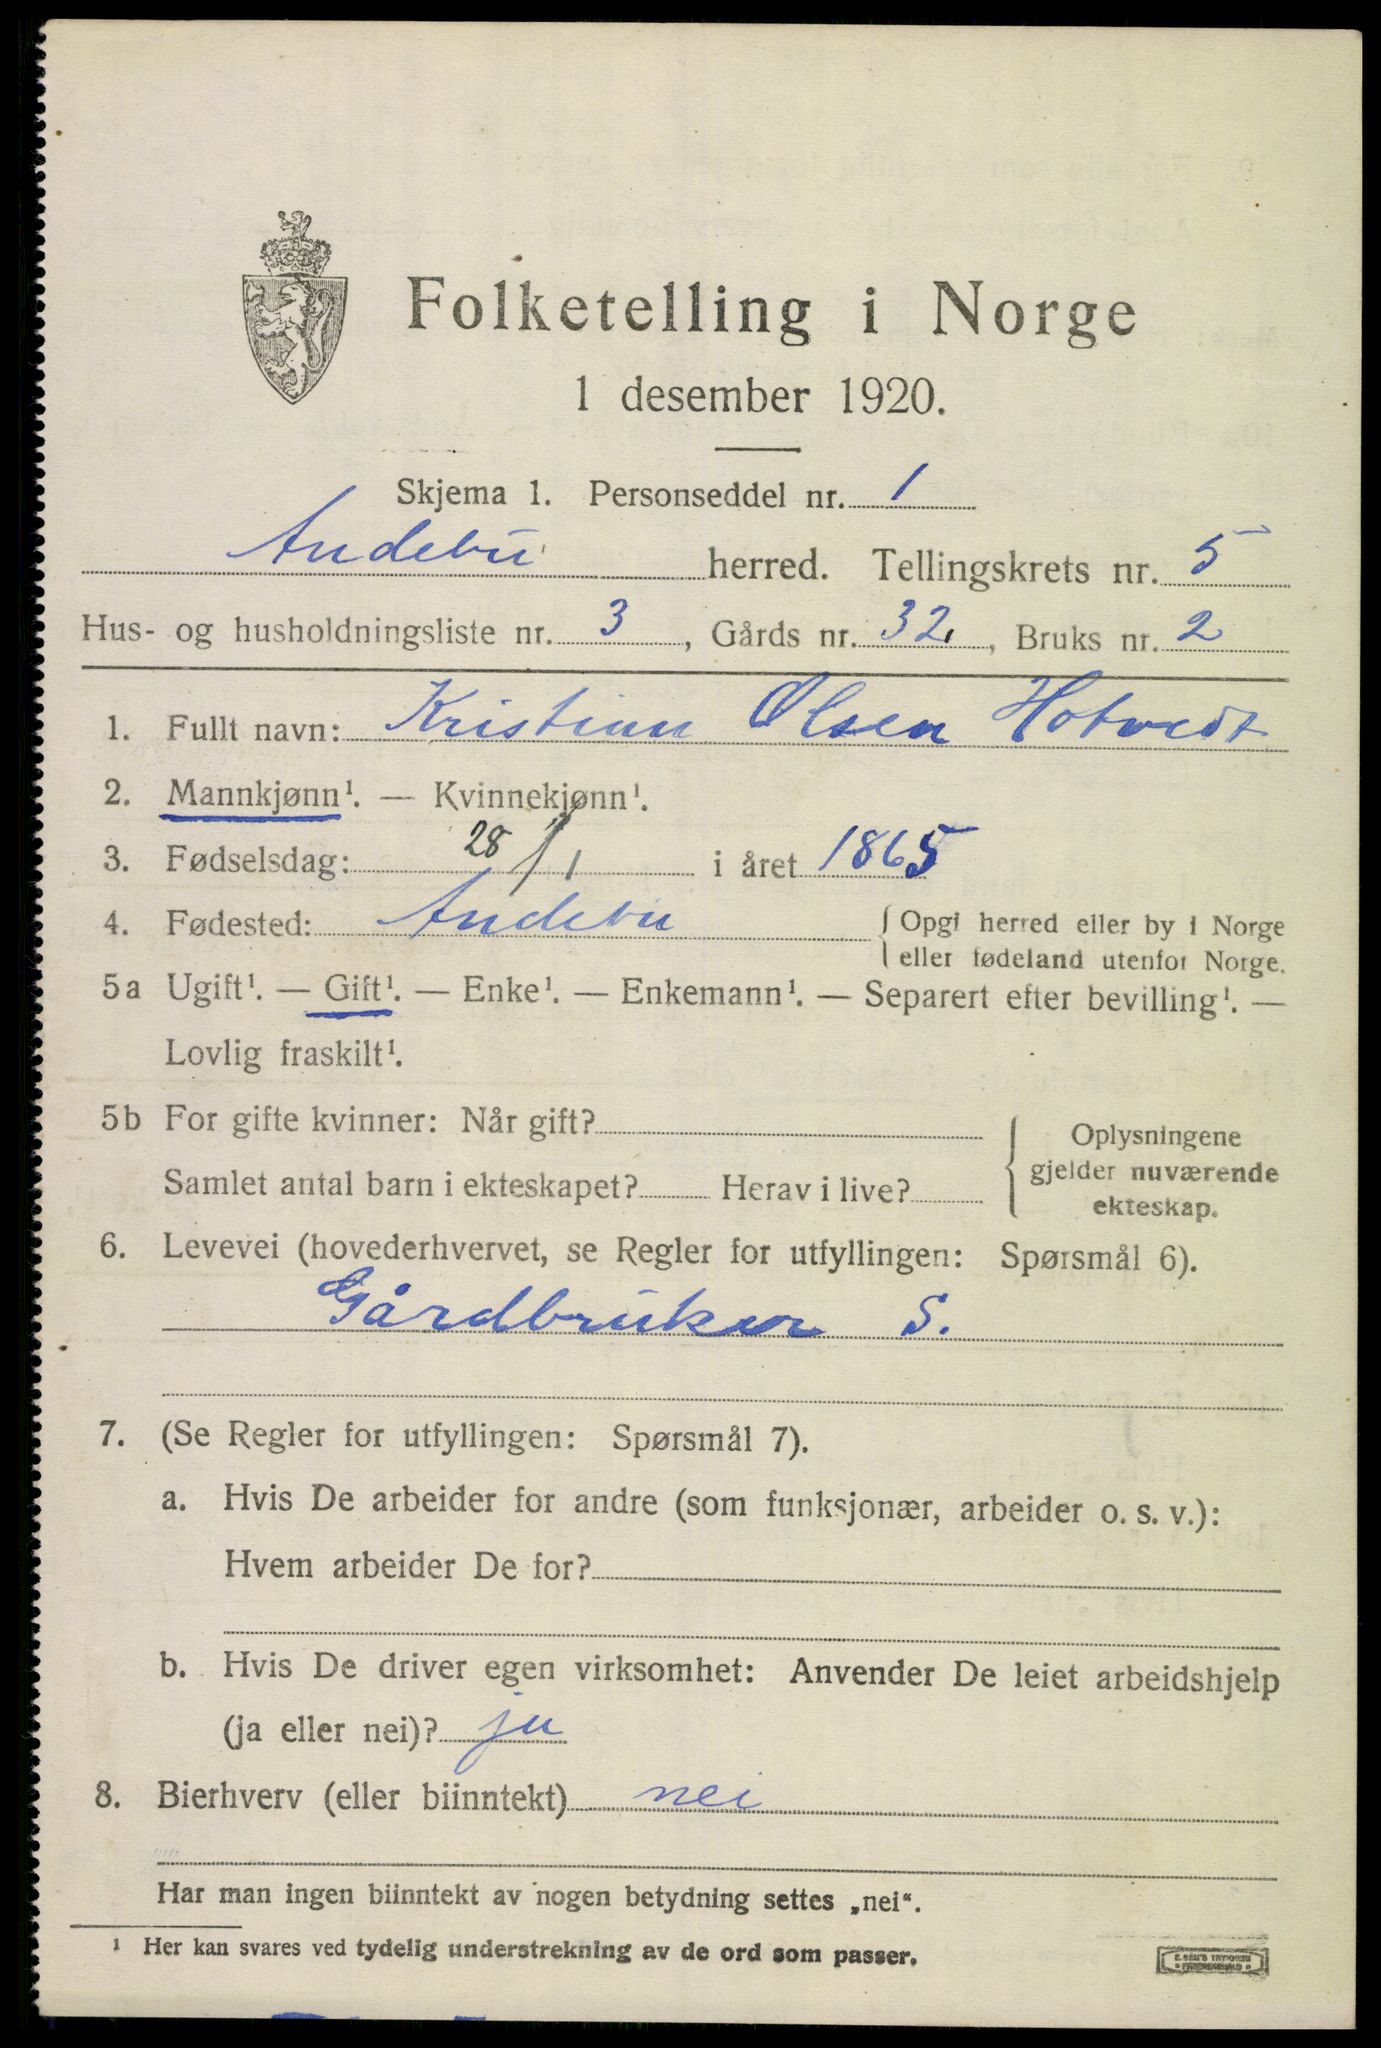 Folketelling i Norge
1 desember 1920.
Skjema 1. Personseddel nr. 1
Andebu herred. Tellingskrets nr. 5
Hus- og husholdningsliste nr. 3, Gårds nr. 32, Bruks nr. 2
1. Fullt navn: Kristian Olsen Hotvedt
2. Mannkjønn¹. — Kvinnekjønn¹.
3. Fødselsdag: 28/1 i året 1865
4. Fødested: Andebu { Opgi herred eller by i Norge
eller fødeland utenfor Norge.
5a Ugift¹. — Gift¹. — Enke¹. — Enkemann¹. — Separert efter bevilling¹. —
Lovlig fraskilt¹.
5b For gifte kvinner: Når gift?
Samlet antal barn i ekteskapet? Herav i live?
{ Oplysningene
gjelder nuværende
ekteskap.
6. Levevei (hovederhvervet, se Regler for utfyllingen: Spørsmål 6).
Gårdbruker S.
7. (Se Regler for utfyllingen: Spørsmål 7).
a. Hvis De arbeider for andre (som funksjonær, arbeider o. s. v.):
Hvem arbeider De for?
b. Hvis De driver egen virksomhet: Anvender De leiet arbeidshjelp
(ja eller nei)? ja
8. Bierhverv (eller biinntekt) nei
Har man ingen biinntekt av nogen betydning settes „nei“.
¹ Her kan svares ved tydelig understrekning av de ord som passer.